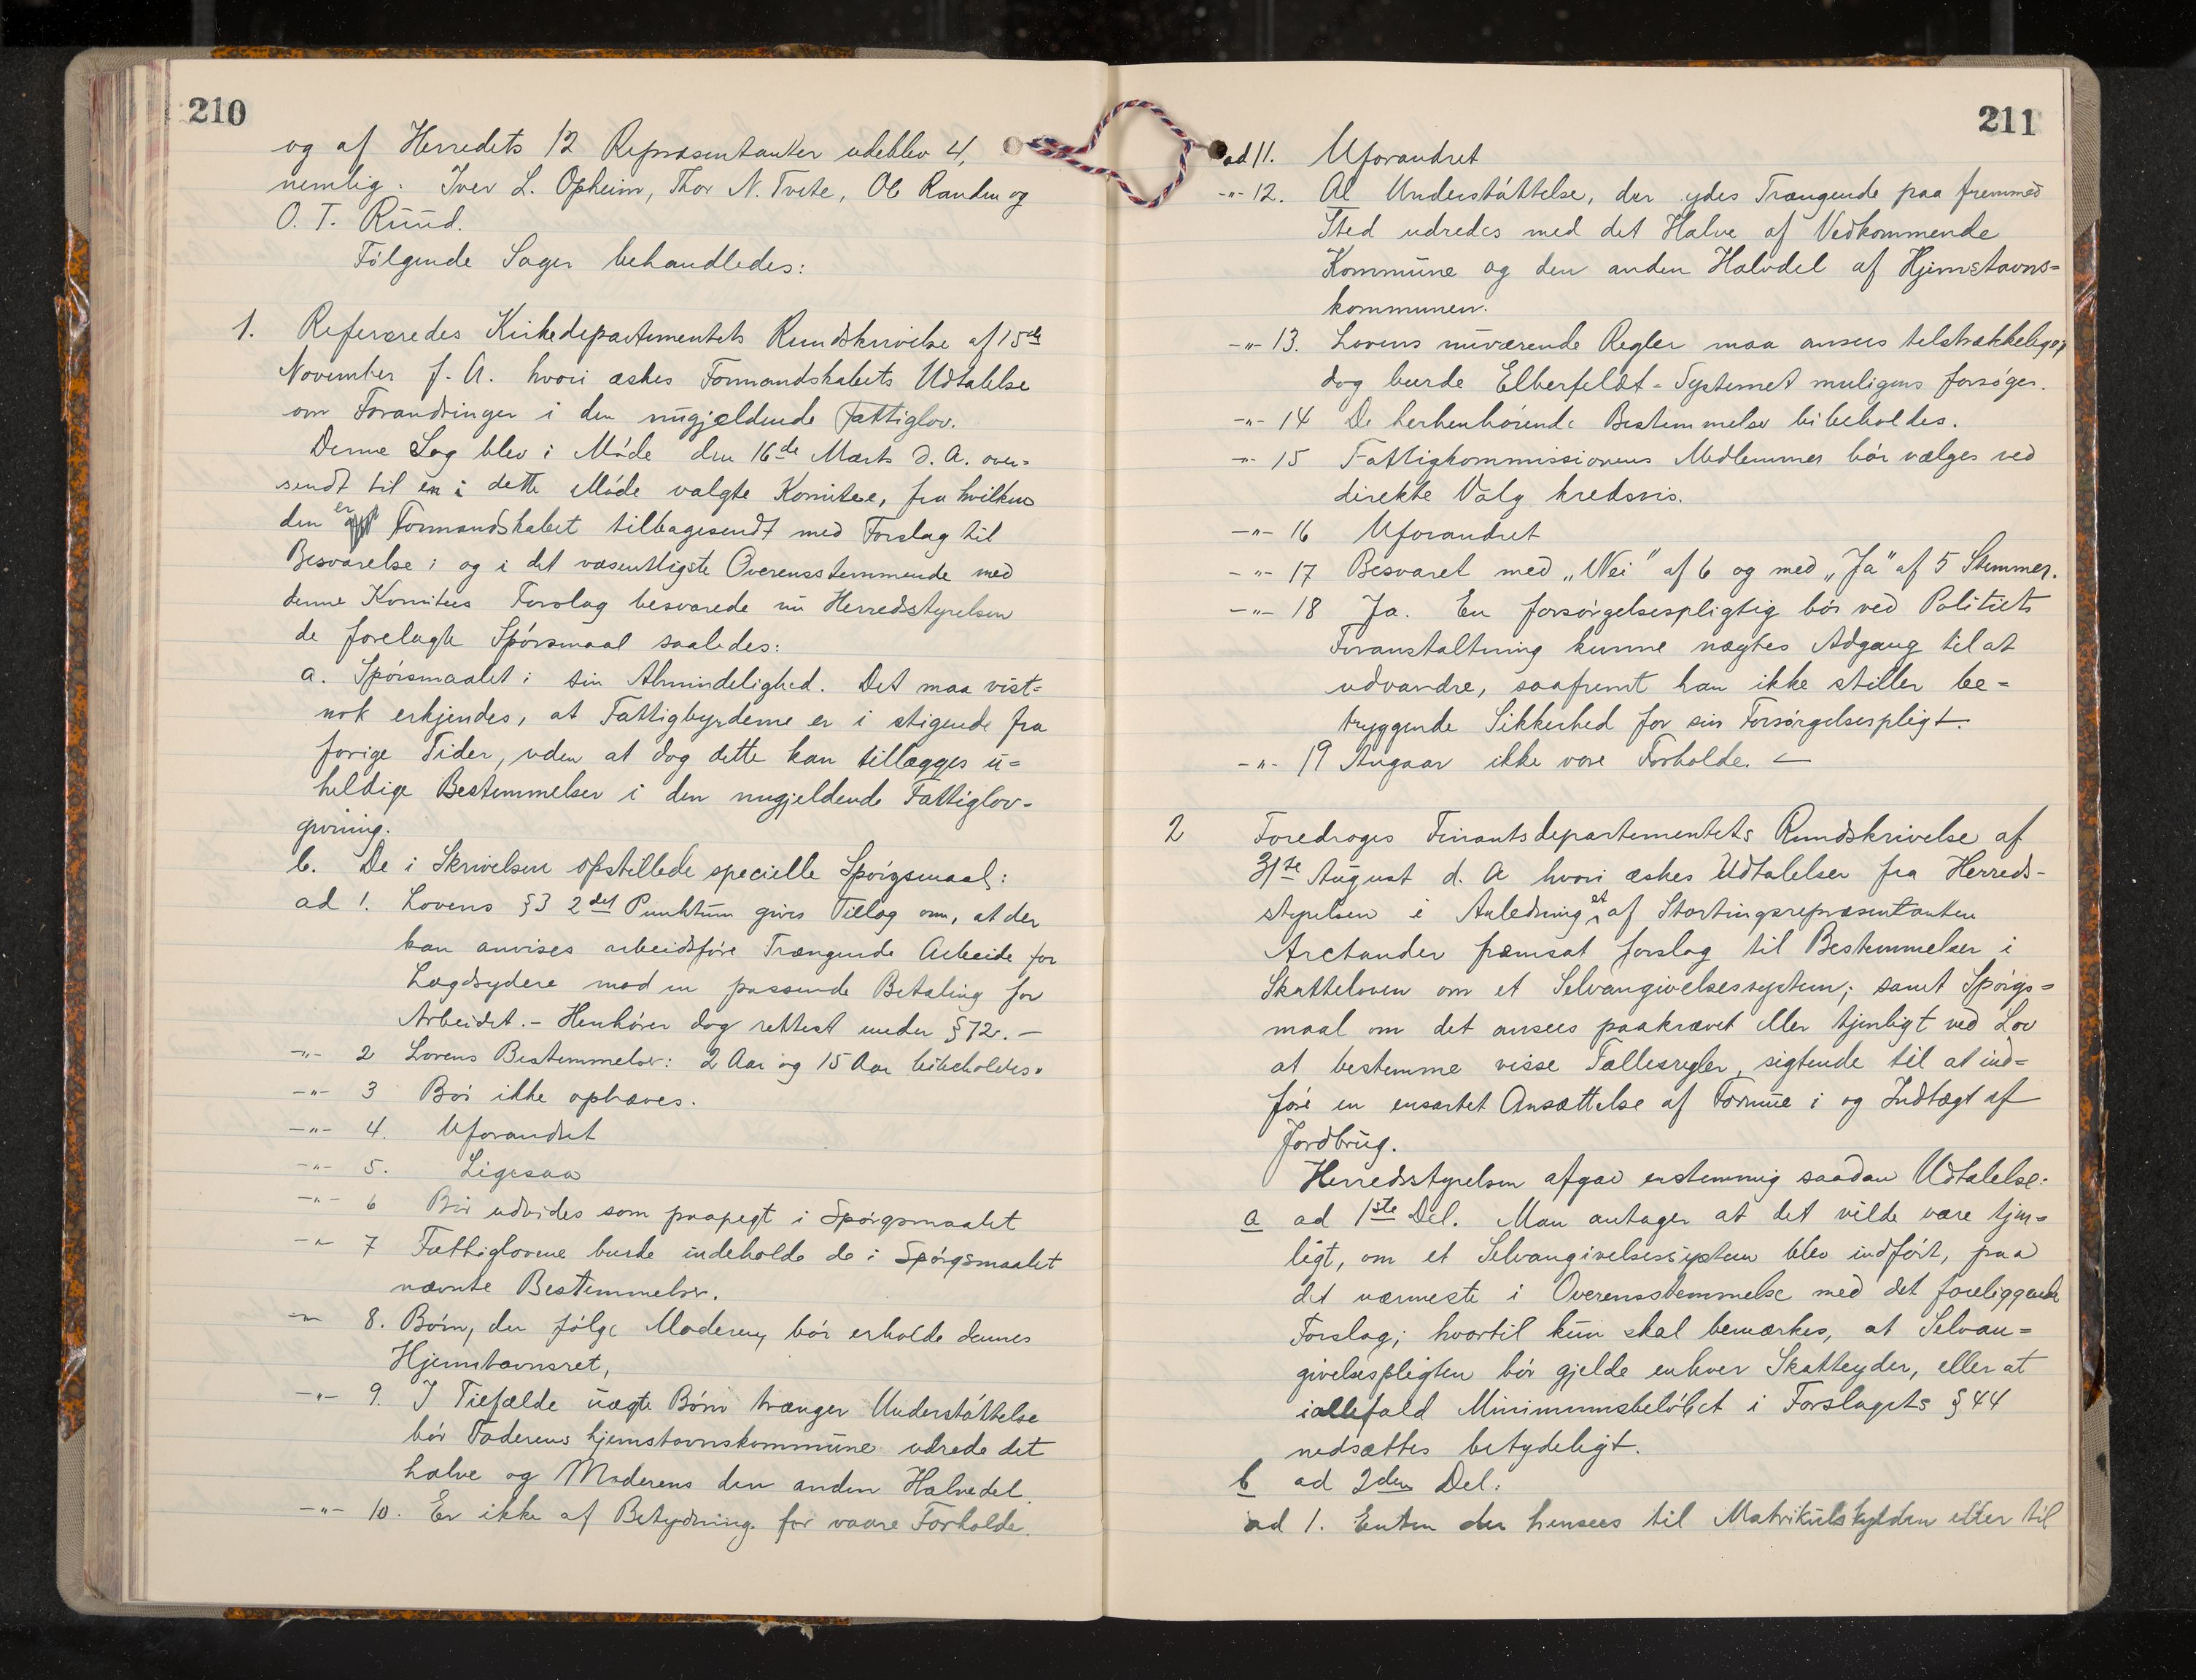 210
og af Herredets 12 Repræsentanter udeblev 4,
nemlig: Iver L. Opheim, Thor N. Tveite, Ob Randen og
O. T. Ruud.
Følgende Sager behandledes:
1. Refereredes Kirkedepartementets Rundskrivelse af 15de
November f. A. hvori æskes Formandskabets Udtalelse
om Forandringer i den nugjældende Fattiglov.
Denne Sag blev i Møde den 16de Marts d. A. over=
sendt til en i dette Møde valgte Komitee, fra hvilken
den er Formandskabet tilbagesendt med Forslag til
Besvarelse; og i det væsentligste Overensstemmende med
denne Komitees Forslag besvarede nu Herredsstyrelsen
de forelagte Spørsmaal saaledes:
a. Spørsmaalet i sin Almindelighed. Det maa vist=
nok erkjendes, at Fattigbyrderne er i stigende fra
forige Tider, uden at dog dette kan tillægges u=
heldige Bestemmelser i den nugjeldende Fattiglov-
givning.
b. De i Skrivelsen opstillede specielle Spørgsmaal:
ad 1. Lovens § 3 2det Punktum gives Tillæg om, at der
kan anvises arbeidsføre Trængende Arbeide for
Lægdsydere mod en passende Betaling for
Arbeidet. - Henhører dog rettest under § 12. -
-"- 2 Lovens Bestemmelser: 2 Aar og 15 Aar bibeholdes.
-"- 3 Bør ikke ophæves.
-"- 4. Uforandret
-"- 5. Ligesaa
-"- 6 Bør udvides som paapegt i Spørgsmaalet
-"- 7 Fattiglovene burde indeholde de i Spørgsmaalet
nævnte Bestemmelser.
-"- 8. Børn, der følge Moderen, bør erholde dennes
Hjemstavnsret,
-"- 9. I Tilfælde uægte Børn trænger Understøttelse
bør Faderens hjemstavnskommune udrede det
halve og Moderens den anden Halvedel.
-"- 10. Er ikke af Betydning for vaare Forholde.
211
ad 11. Uforandret
-"- 12. Al Understøttelse, der ydes Trængende paa fremmed
Sted udredes med det Halve af Vedkommende
Kommune og den anden Halvdel af Hjemstavns=
kommunen.
-"- 13. Lovens nuværende Regler maa ansees telstrækkelige,
dog burde Elberfeldt-Systemet muligens forsøges.
-"- 14 De herhenhørende Bestemmelser bibeholdes.
-"- 15 Fattigkommissionens Medlemmer bør vælges ved
direkte Valg kredsvis.
-"- 16 Uforandret
-"- 17 Besvaret med „Nei" af 6 og med „Ja" af 5 Stemmer.
-"- 18 Ja. En forsørgelsespligtig bør ved Politiets
Foranstaltning kunne nægtes Adgang til at
udvandre, saafremt han ikke stiller be=
tryggende Sikkerhed for sin Forsørgelsespligt.
-"- 19 Angaar ikke vore Forholde.
2 Foredroges Finantsdepartementets Rundskrivelse af
31te August d. A hvori æskes Udtalelser fra Herreds-
styrelsen i Anledning et af Stortingsrepræsentanten
Arctander fræmsat forslag til Bestemmelser i
Skatteloven om et Selvangivelsessystem; samt Spørgs=
maal om det ansees paakrævet eller tjenligt ved Lov
at bestemme visse Fællesregler, sigtende til at ind=
føre en ensartet Ansættelse af Formue i og Indtægt af
Jordbrug.
Herredsstyrelsen afgav enstemmig saadan Udtalelse:
a ad 1ste Del. Man antager at det vilde være tjen=
ligt, om et Selvangivelsessystem blev indført, paa
det nærmeste i Overensstemmelse med det foreliggende
Forslag; hvortil kun skal bemærkes, at Selvan=
givelsespligten bør gjelde enhver Skatteyder, eller at
iallefald Minimumsbeløbet i Forslagets § 44
nedsættes betydeligt.
b ad 2den Del:
ad 1. Enten der hensees til Matrikulskylden eller til